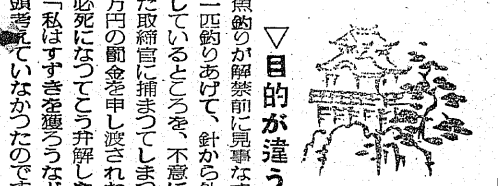 ▽目的が違う
魚釣りが解禁前に見事な
一匹釣りあげて、針から
しているところを、不意に
た取締官に捕まつてしまつ
万円の罰金を申し渡された
必死になつてこう弁解した
「私はすずきを獲ろうなど
頭考えていなかつたので